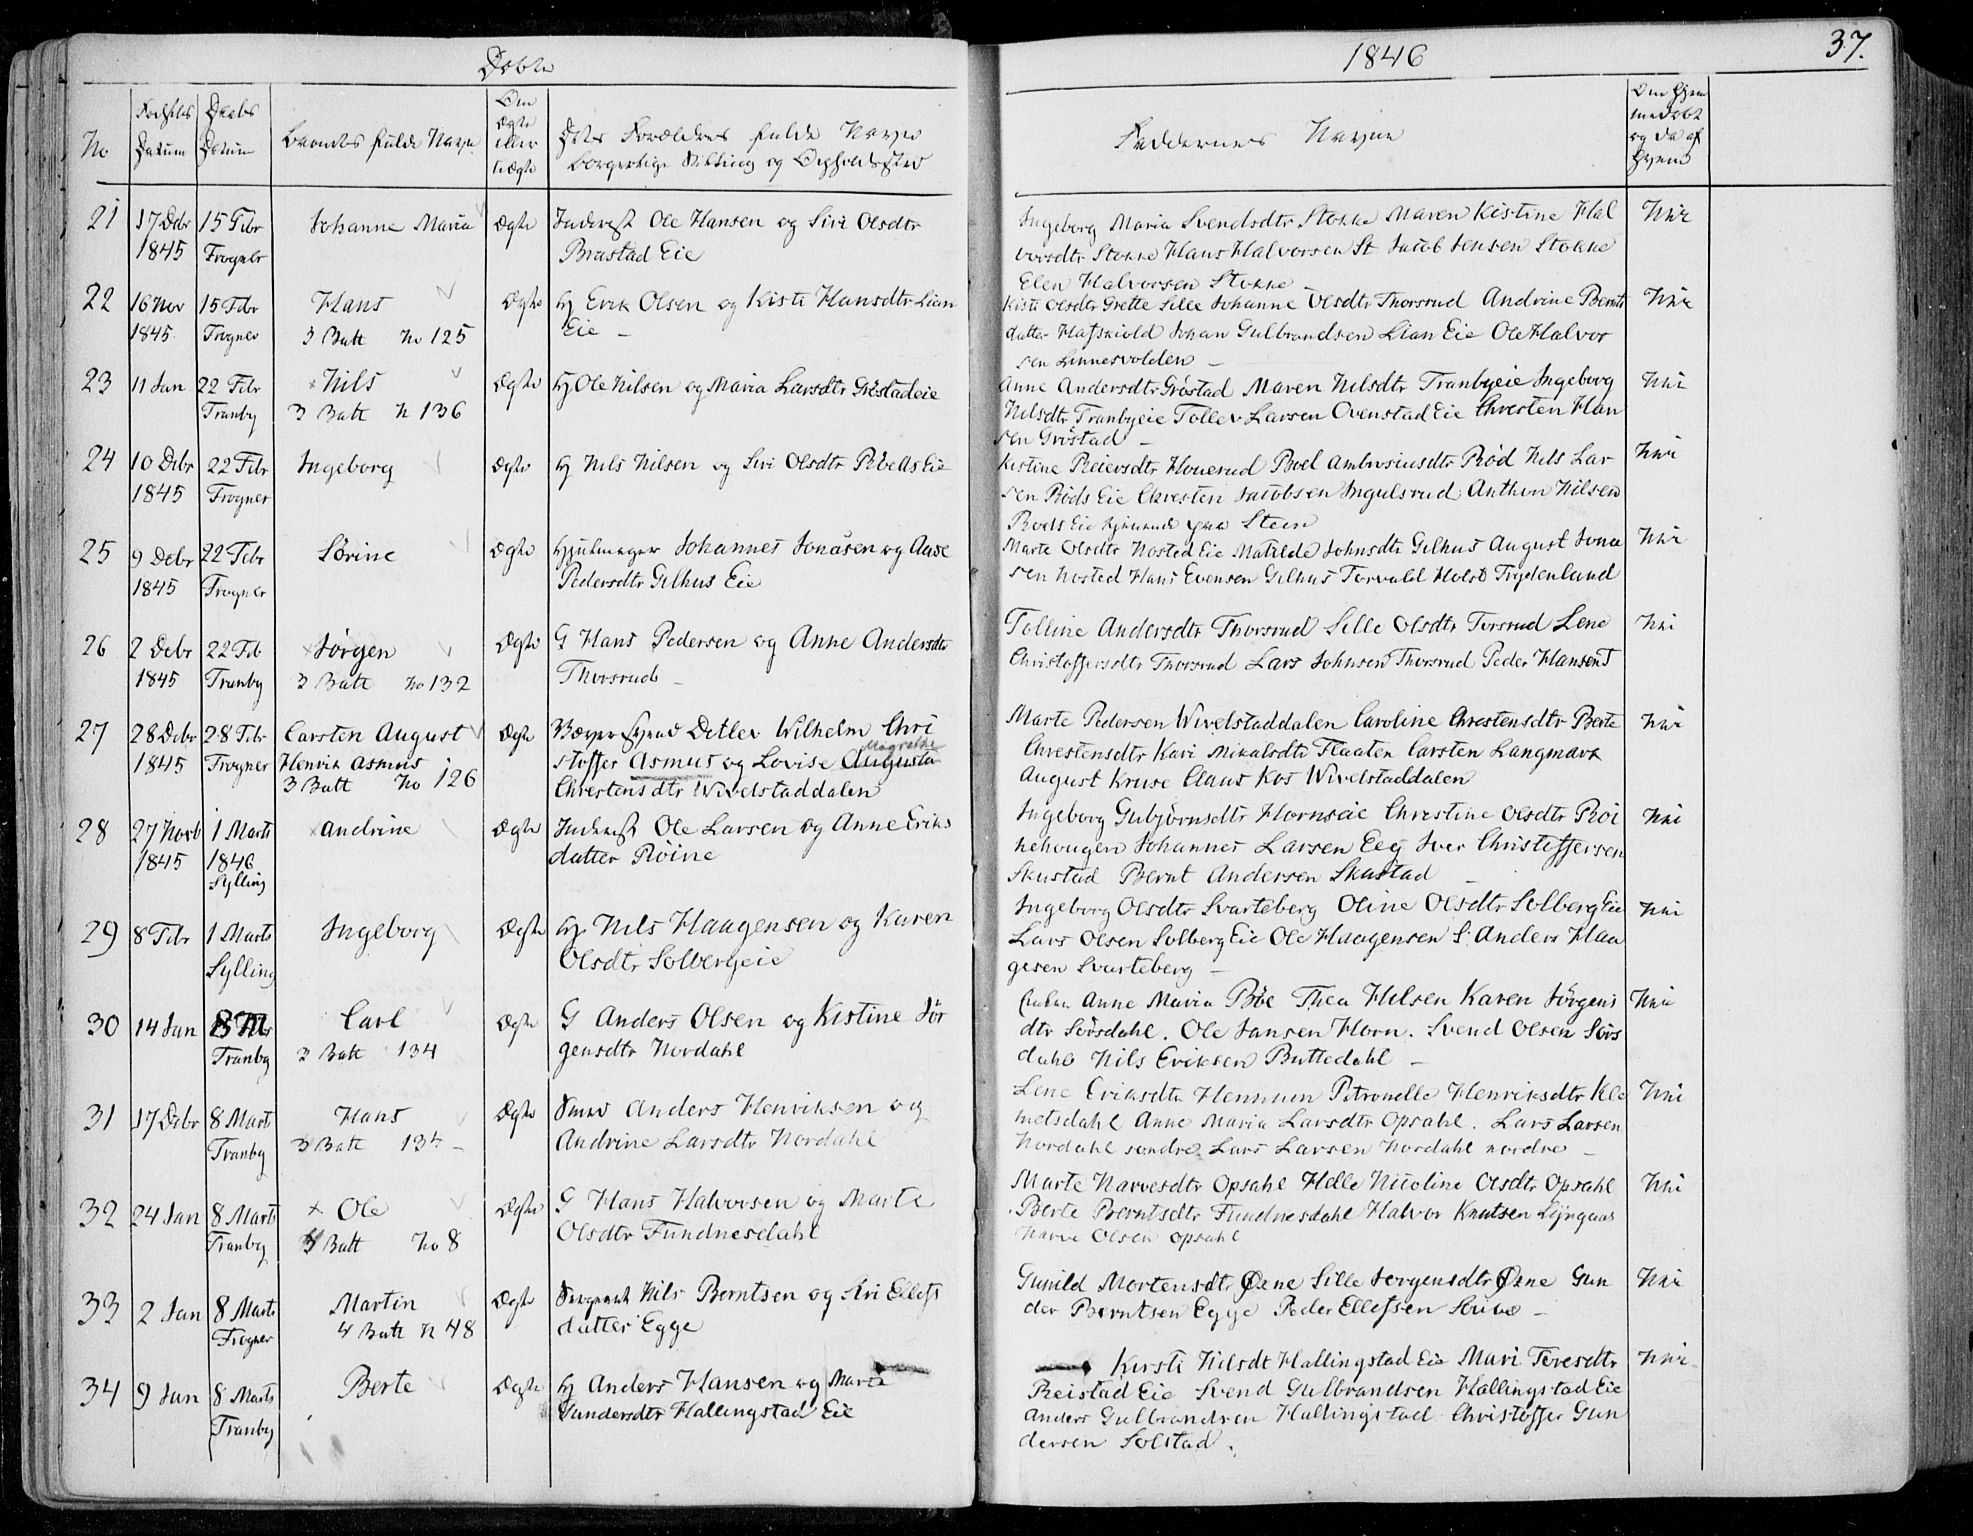 Døbte
1846
37.
No
Fødsels Datum
Daabs Datum
Barnets fulde Navn
Om ægte eller uægte
Dets Forældres fulde Navne
borgerlige Stilling og Opholdssted
Faddernes Navne
Om Hjemmedøbt og da af Hvem
21 17 Debr 15 Febr Johanne Maria Ægte Inderst Ole Hansen og Siri Olsdtr
1845 Frogner Brastad Eie
Ingeborg Maria Svendsdtr Stokke Maren Kistine Hal
vorsdtr Stokke Hans Halvorsen St Jacob Jensen Stokke
Elen Halvorsen Stokke
22 16 Nov 15 Febr Hans Ægte Hj Erik Olsen og Kisti Hansdtr Lian
1845 Frogner 3 Batt No 125 Eie
Kisti Olsdtr Grette Sille Johanne Olsdtr Thorsrud Andrine Bernts
datter Hafskiold Johan Gulbrandsen Lian Eie Ole Halvor
sen Linnesvolden
23 11 Jan 22 Febr Nils Ægte Hj Ole Nilsen og Maria Larsdtr Gröstadeie
Tranby 3 Batt N 136
Anne Andersdtr Gröstad Maren Nilsdtr Tranbyeie Ingeborg
Nilsdtr Tranbyeie Tollev Larsen Ovenstad Eie Christen Han
sen Gröstad
24 10 Debr 22 Febr Ingeborg Ægte Hj Nils Nilsen og Siri Olsdtr Röds Eie
1845 Frogner
Kistine Reiersdtr Houerud Boel Ambrosiusdtr Röd Nils Lar
sen Röds Eie Christen Jacobsen Ingulsrud Anthon Nilsen
Röds Eie tjenende paa Steen
25 9 Debr 22 Febr Sörine Ægte Hjulmager Johannes Jonasen og Aase
1845 Frogner Pedersdtr Gilhus Eie
Marte Olsdtr Nosted Eie Matilde Johnsdtr Gilhus August Jona
sen Nosted Hans Evensen Gilhus Torvald Holst Frydenlund
26 2 Debr 22 Feb Jörgen Ægte G Hans Pedersen og Anne Andersdtr
1845 Tranby 3 Batt No 132 Thorsrud
Tolline Andersdtr Thorsrud Sille Olsdtr Torsrud Lene
Christoffersdtr Thorsrud Lars Johnsen Thorsrud Peder Hansen T
27 28 Debr 28 Febr Carsten August Ægte Væversvend Detlev Wilhelm Chri
1845 Frogner Henrik Asmus stoffer Asmus og Lovise Augusta Magrethe
3 Batt No 126 Christensdtr Wivelstaddalen
Marte Pedersen Wivelstaddalen Caroline Christensdtr Berte
Christensdtr Kari Mikalsdtr Flaaten Carsten Langmark
August Kruse Claus Kos Wivelstaddalen
28 27 Novb 1 Marts Andrine Ægte Inderst Ole Larsen og Anne Eriks
1845 1846 Sylling datter Röine
Ingeborg Gubjörnsdtr Hornseie Christine Olsdtr Röi
nehougen Johannes Larsen Eeg Iver Christoffersen
Skustad Bernt Andersen Skustad
29 8 Febr 1 Marts Ingeborg Ægte Hj Nils Haagensen og Karen
Sylling Olsdtr Solbergeie
Ingeborg Olsdtr Svarteberg Oline Olsdtr Solberg Eie
Lars Olsen Solberg Eie Ole Haagensen S. Anders Haa
gesen Svarteberg
30 14 Jan 8 M Carl Ægte G Anders Olsen og Kistine Jör
Tranby 3 Batt 134 gensdtr Nordahl
Anne Maria Böe Thea Nilsen Karen Jörgens
dtr Sörsdahl. Ole Jansen Horn. Svend Olsen Sörs
dahl Nils Eriksen Buttedahl
31 17 Debr 8 Mart Hans Ægte Smed Anders Henriksen og
Tranby 3 Batt 134 Andrine Larsdtr Nordahl
Lene Eriksdtr Hennum Petronelle Henriksdtr Kle
metsdahl Anne Maria Larsdtr Opsahl. Lars Larsen
Nordahl söndre. Lars Larsen Nordahl nordre
32 24 Jan 8 Marts Ole Ægte G Hans Halvorsen og Marte
Tranby 4 Batt No 8 Olsdtr Fundnesdahl
Marte Narvesdtr Opsahl Helle Nicoline Olsdtr Opsahl
Berte Berntsdtr Fundnesdahl Halvor Knutsen
Narve Olsen Opsahl
33 2 Jan 8 Marts Martin Ægte Sergeant Nils Berntsen og Siri Ellefs
Frogner 4 Batt N 48 datter Egge
Gunild Mortensdtr Öxne Sille Jörgensdtr Öxne Gun
der Berntsen Egge Peder Ellefsen
34 9 Jan 8 Marts Berte Ægte Hj Anders Hansen og Maria
Tranby Gundersdtr Hallingstad Eie
Kirsti Nilsdt Hallingstad Eie Mari Teresdtr
Reistad Eie Svend Gulbrandsen Hallingstad Eie
Anders Gulbrandsen Hallingstad Christoffer Gun
dersen Solstad.